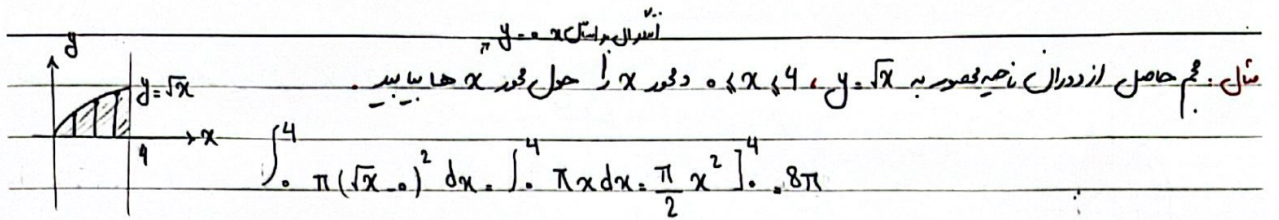 انتگرال براساس x y=0
مثال: حجم حاصل از دوران ناحیه محصور به y=√x ، 0≤x≤4 و محور x را حول محور x ها بیابید.
y
y=√x
x
4
∫₀⁴ π(√x-0)² dx = ∫₀⁴ πx dx = π/2 x² ]₀⁴ = 8π